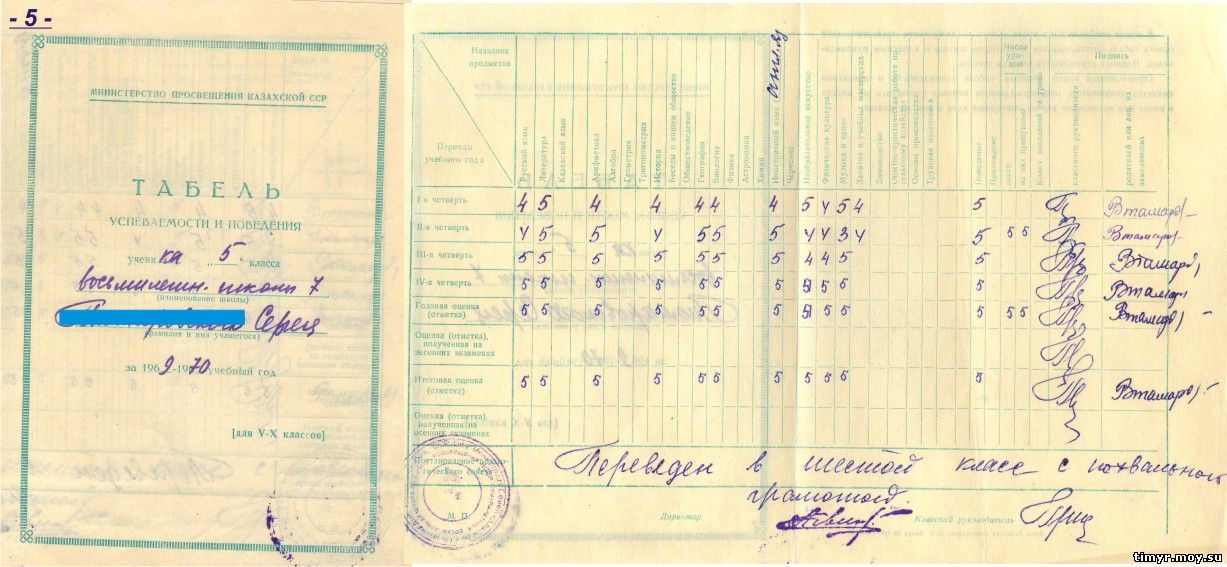 - 5 -
МИНИСТЕРСТВО ПРОСВЕЩЕНИЯ КАЗАХСКОЙ ССР
ТАБЕЛЬ
УСПЕВАЕМОСТИ И ПОВЕДЕНИЯ
учени ка „ 5 " класса
восьмилетн. школы 7
(наименование школы)
Серец
(фамилия и имя учащегося)
за 1969-1970 учебный год
[для V-X классов]
Название предметов
Периоды учебного года
Русский язык
Литература
Казахский язык
Арифметика
Алгебра
Геометрия
Тригонометрия
История
Беседы о нашем обществе
Обществоведение
География
Биология
Физика
Астрономия
Химия
Иностранный язык англ. яз
Черчение
Изобразительное искусство
Физическая культура
Музыка и пение
Домоводство
Трудовая подготовка
Поведение
Прилежание
Число уроков
всего
из них пропущено
Подпись
классного руководителя
родителей или лиц, их заменяющих
I-я четверть 4 5 4 4 4 4 4 5 4 5 4 5
II-я четверть 4 5 5 4 5 5 5 4 4 3 4 5 5 5
III-я четверть 5 5 5 5 5 5 5 5 4 4 5 5
IV-я четверть 5 5 5 5 5 5 5 5 5 5 5
Годовая оценка (отметка) 5 5 5 5 5 5 5 5 5 5 5 5 5
Оценка (отметка), полученная на весенних экзаменах
Итоговая оценка (отметка) 5 5 5 5 5 5 5 5 5 5 5
Оценка (отметка), полученная на осенних экзаменах
Постановление педагогического совета
Переведен в шестой класс с похвальной
грамотой.
М. П.
Директор
Классный руководитель
timyr.moy.su